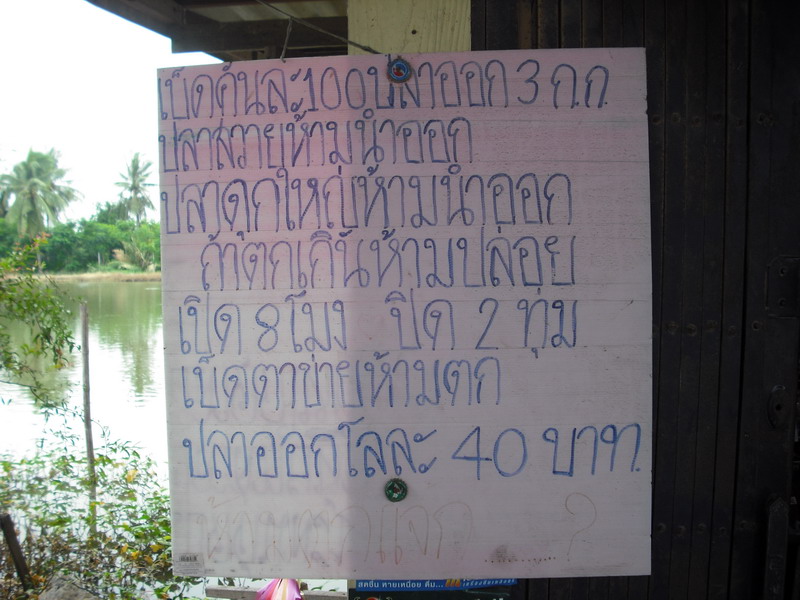 เบ็ดคันละ100ปลาออก 3 ก.ก.
ปลาสวายห้ามนำออก
ปลาดุกใหญ่ห้ามนำออก
ถ้าตกเกินห้ามปล่อย
เปิด 8 โมง ปิด 2 ทุ่ม
เบ็ดตาข่ายห้ามตก
ปลาออกโลละ 40 บาท.
สดชื่น หายเหนื่อย ดื่ม...